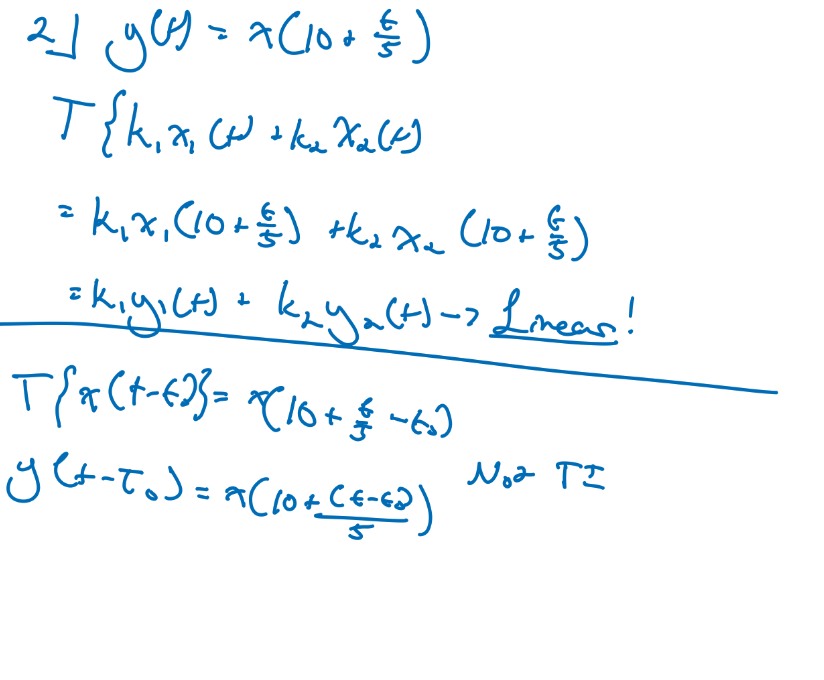 2] y(t) = x(10 + t/5)
T{k₁x₁(t) + k₂x₂(t)
= k₁x₁(10 + t/5) + k₂x₂(10 + t/5)
= k₁y₁(t) + k₂y₂(t) -> Linear!
T{x(t-t₀)} = x(10 + t/5 - t₀)
y(t-τ₀) = x(10 + (t-t₀)/5) Not TI